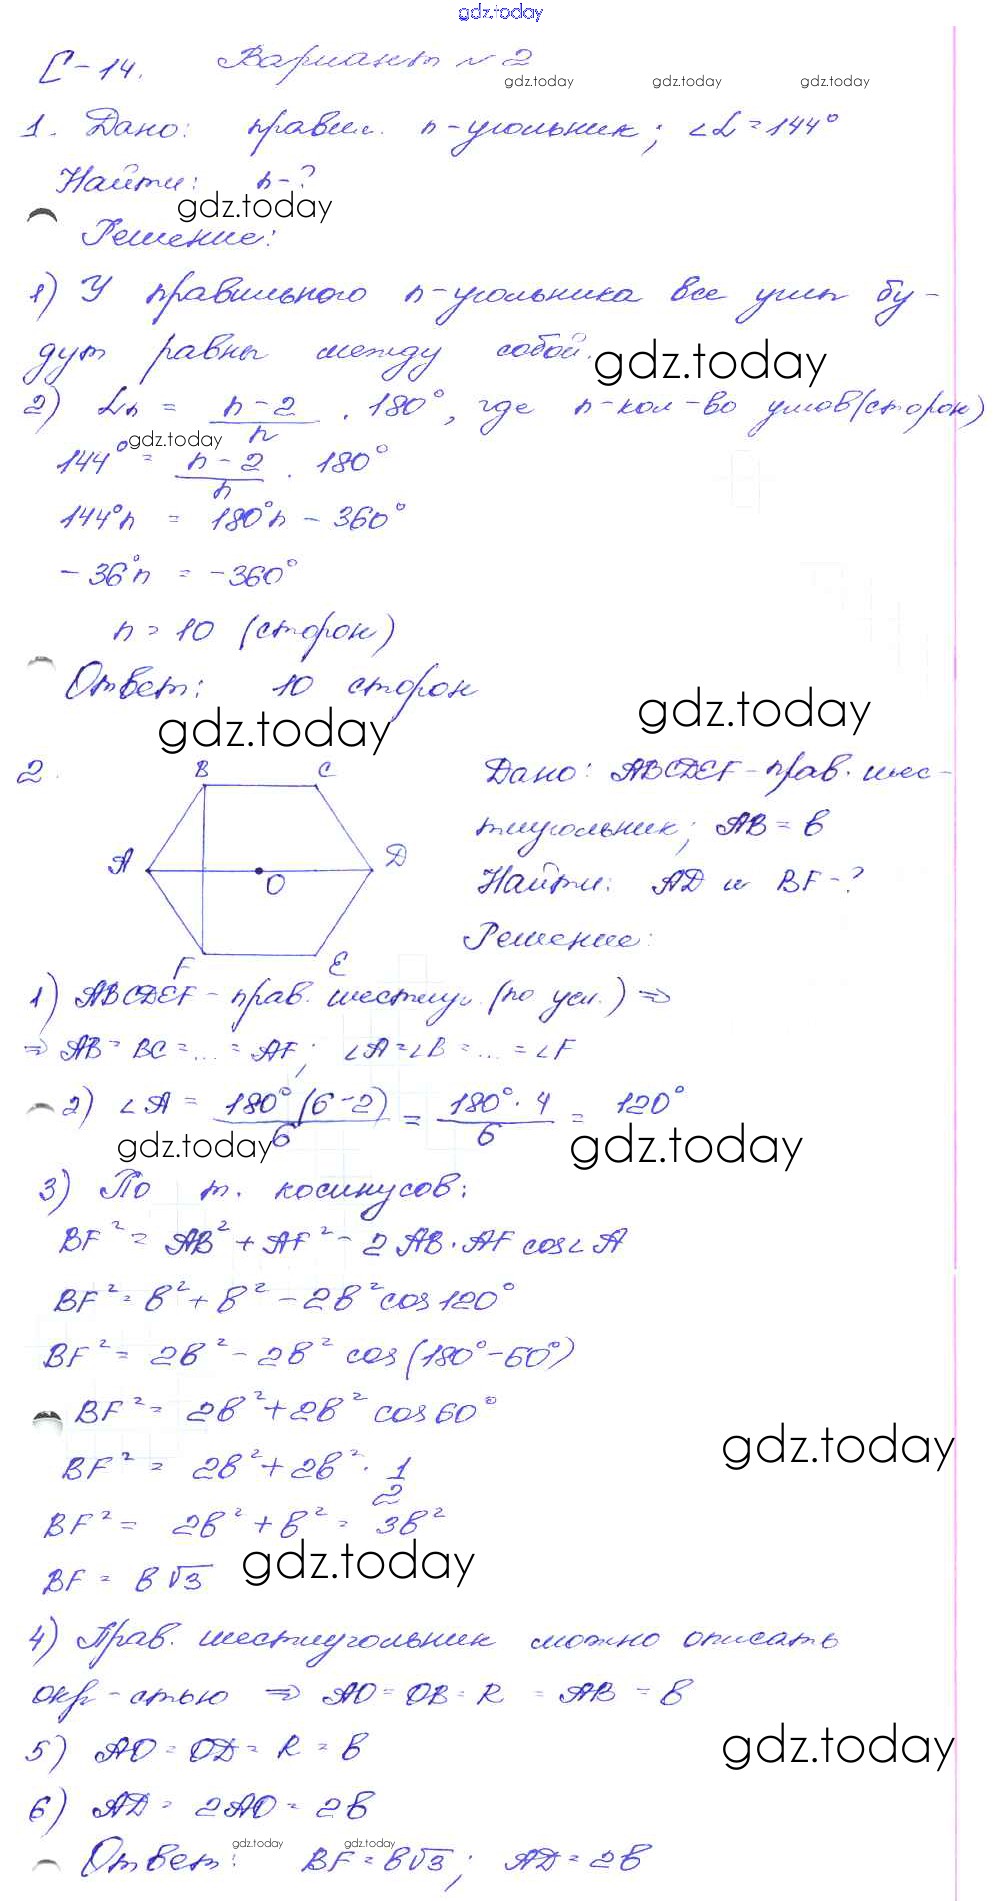 gdz.today
С-14. Вариант №2
gdz.today gdz.today gdz.today
1. Дано: правил. n-угольник; ∠α=144°
Найти: n-?
gdz.today
Решение:
1) У правильного n-угольника все углы бу-
дут равны между собой.
gdz.today
2) αn = (n-2)/n · 180°, где n-кол-во углов(сторон)
gdz.today
144° = (n-2)/n · 180°
144°n = 180°n - 360°
-36°n = -360°
n = 10 (сторон)
Ответ: 10 сторон
gdz.today gdz.today
2.
B C
A D
O
F E
Дано: ABCDEF-прав. шес-
тиугольник; AB = в
Найти: AD и BF-?
Решение:
1) ABCDEF-прав. шестиуг. (по усл.) ⇒
⇒ AB = BC = ... = AF; ∠A=∠B = ... = ∠F
2) ∠A = 180°(6-2)/6 = 180°·4/6 = 120°
gdz.today gdz.today
3) По т. косинусов:
BF² = AB² + AF² - 2AB·AF cos∠A
BF² = в² + в² - 2в² cos120°
BF² = 2в² - 2в² cos(180°-60°)
BF² = 2в² + 2в² cos60°
gdz.today
BF² = 2в² + 2в² · 1/2
BF² = 2в² + в² = 3в²
gdz.today
BF = в√3
4) Прав. шестиугольник можно описать
окр-стью ⇒ AO = OB = R = AB = в
5) AO = OD = R = в
gdz.today
6) AD = 2AO = 2в
gdz.today gdz.today
Ответ: BF = в√3; AD = 2в